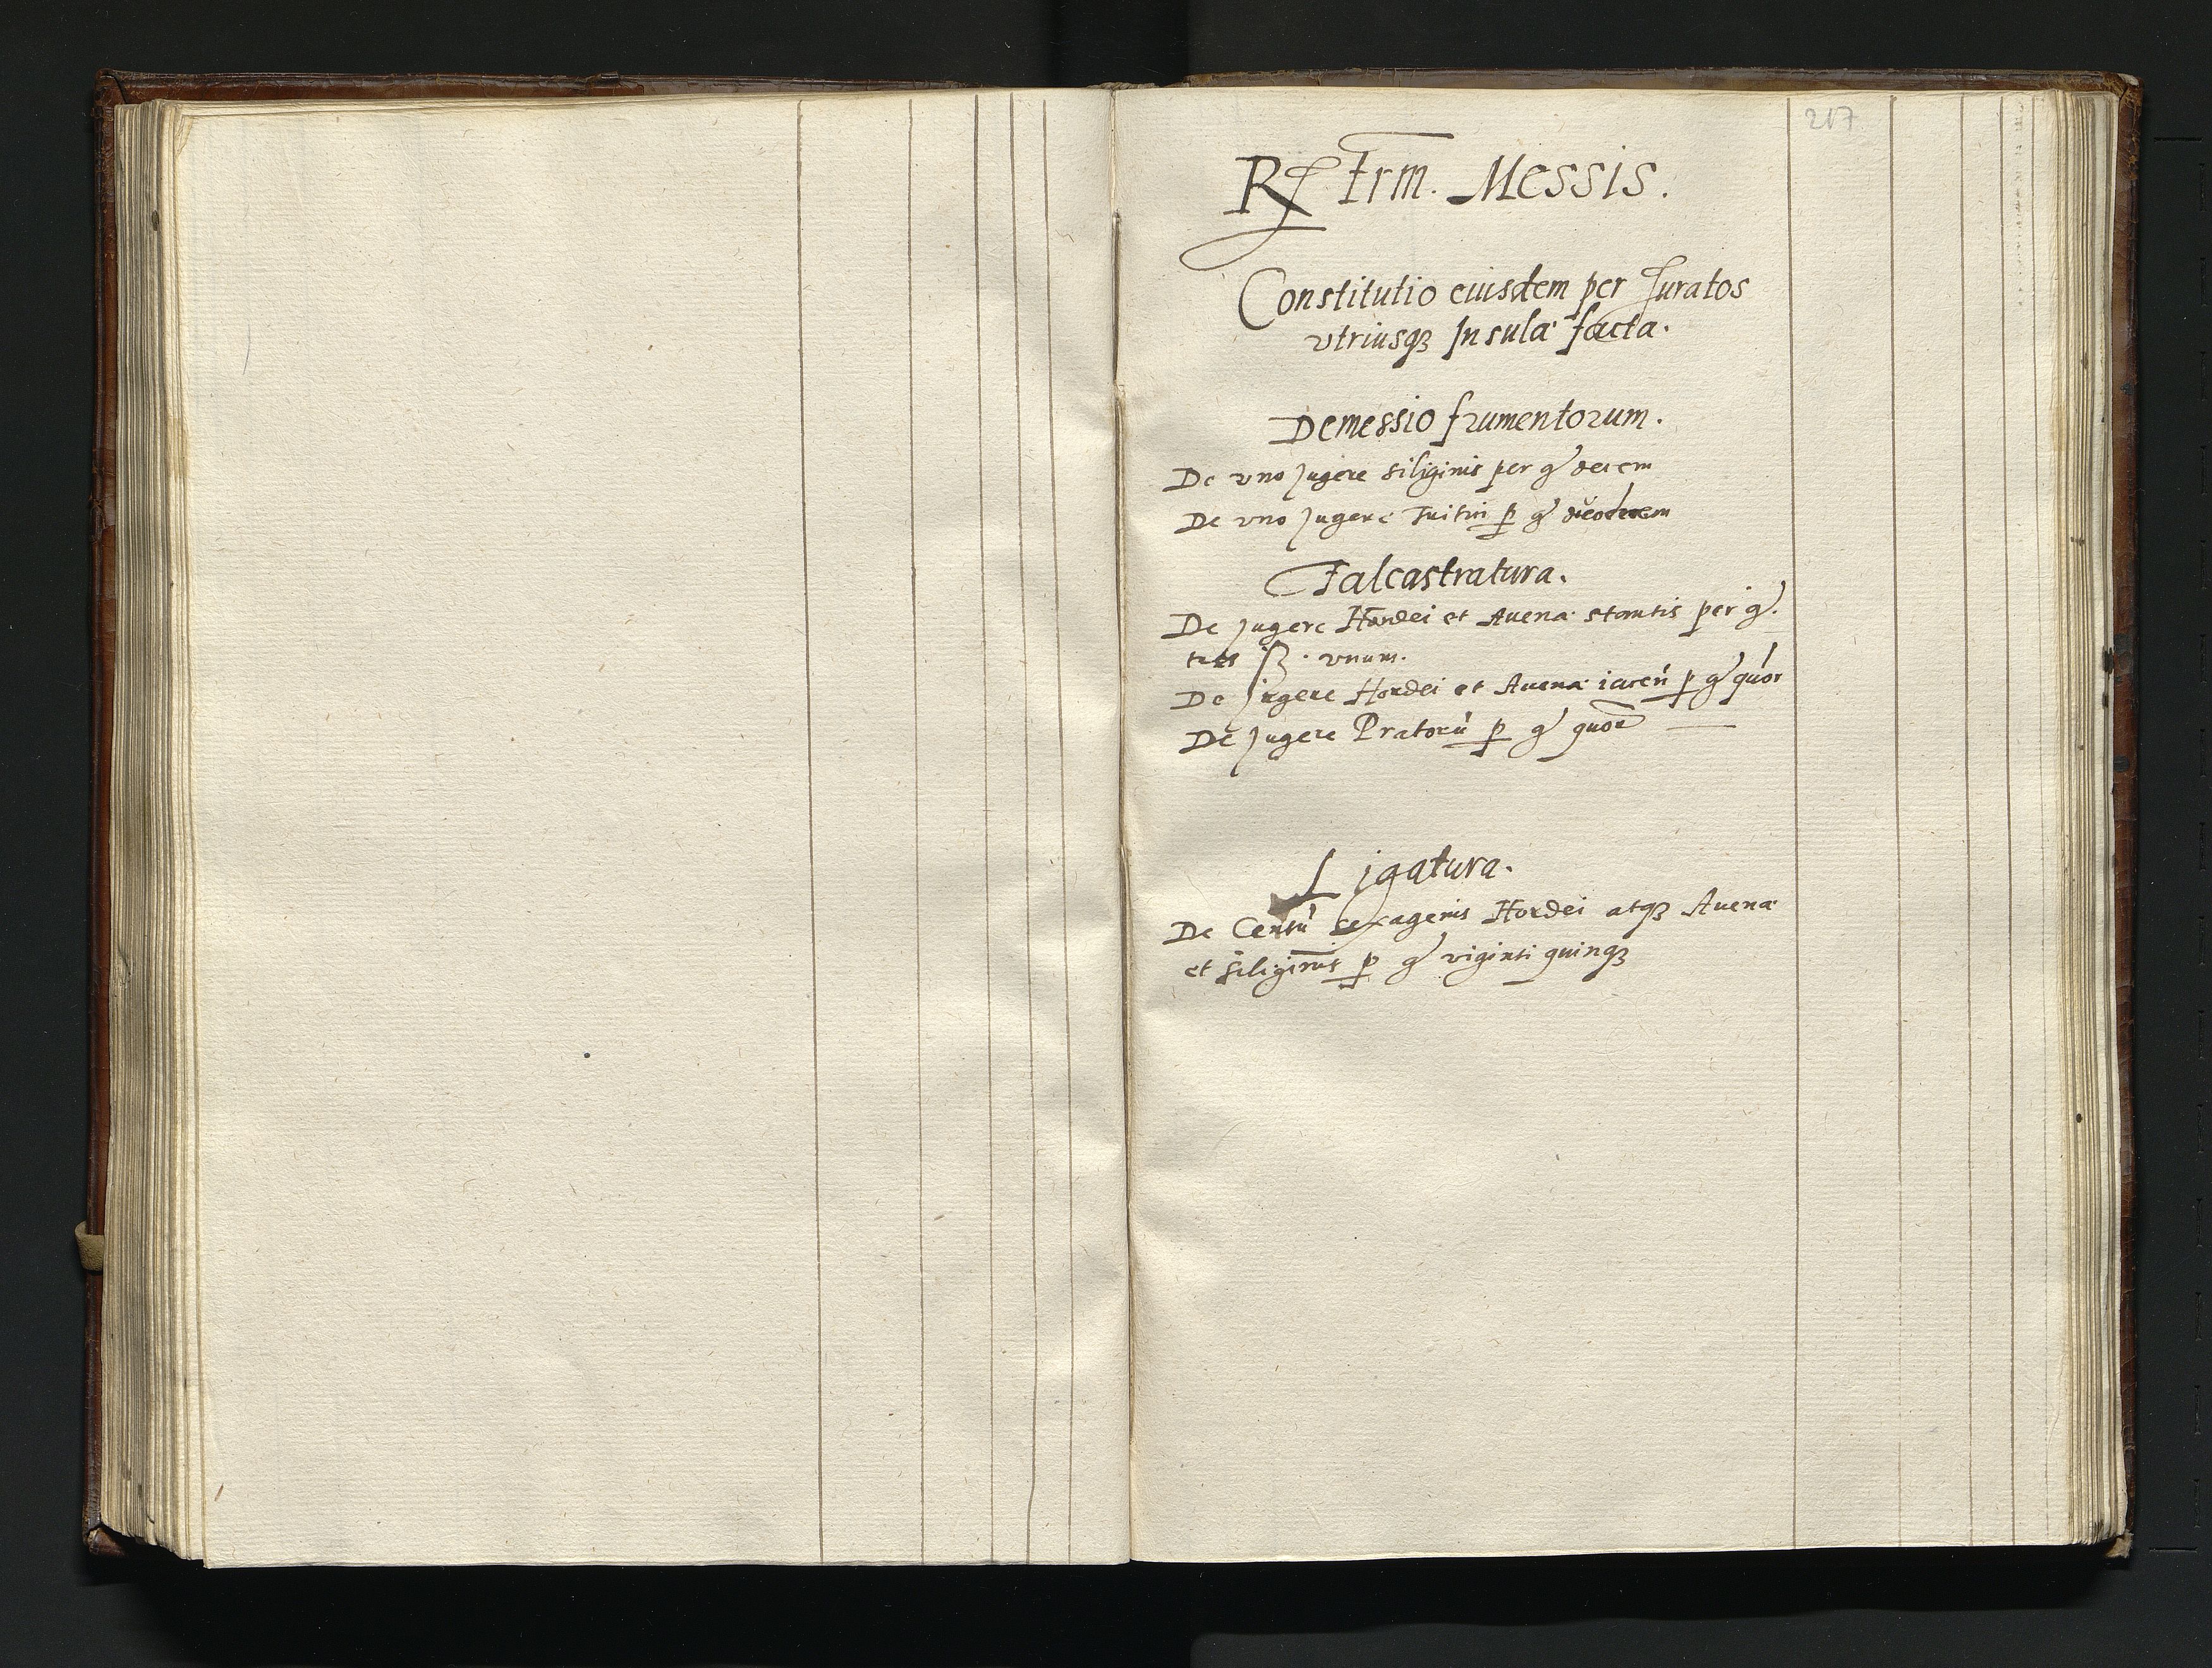 217
Rs Frm. Messis.
Constitutio eiusdem per Juratos
vtriusqz Insula facta.
Demessio frumentorum.
De vno Jugere Siliginis per g decem
De vno Jugere Tritici p g duodecem
Falcastratura.
De Jugere Hordei et Auena stantis per g.
tres sz. vnum.
De Jugere Hordei et Auena iacen p g quor
De Jugere Pratoru p g quor
Ligatura.
De Centu sexagenis Hordei atqz Auena
et siliginis p g viginti quinqz